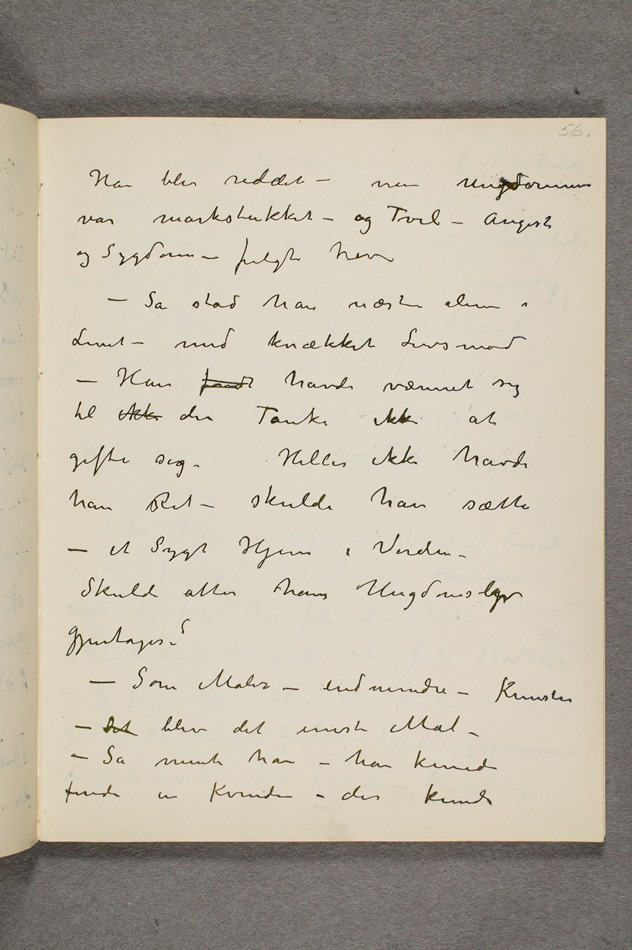 56.
Han blev reddet – men Ungdommen
var markstukket – og Tvil – Angest
og Sygdom – fulgte ham
– Så stod han næsten alene i
Livet – med knækket Livsmod
– Han havde vænnet sig
til ikke den Tanke ikke at
gifte sig. Heller ikke havde
han Ret – skulde han sætte
– et Sygt Hjem i Verden –
Skulde atter hans Ungdomsliv
gjentages?
– Som Maler – end mindre – Kunsten
– Det blev det eneste Mål –
– Så mente han – han kunde
finde en Kvinde – der kunde